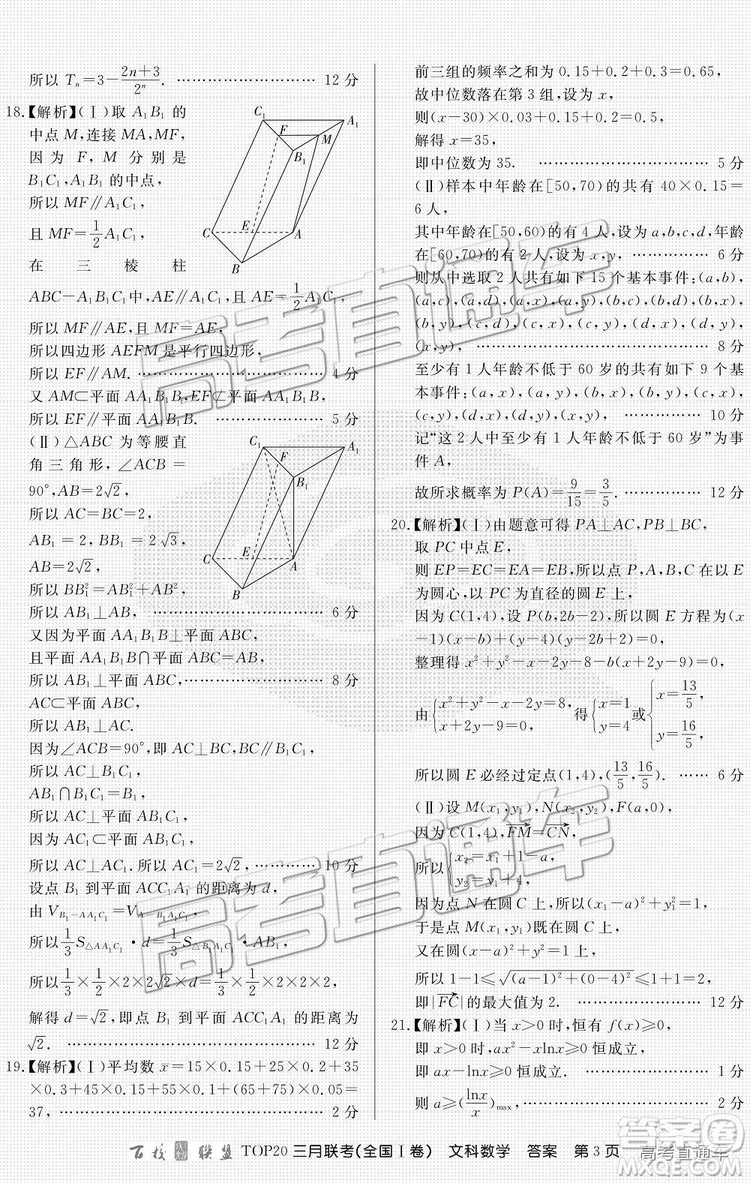 所以 Tₙ=3-(2n+3)/2ⁿ. …………………… 12 分
18.【解析】(Ⅰ)取 A₁B₁ 的
中点 M,连接 MA,MF,
因为 F,M 分别是
B₁C₁,A₁B₁ 的中点,
所以 MF∥A₁C₁,
且 MF=1/2 A₁C₁.
在三棱柱
ABC-A₁B₁C₁ 中,AE∥A₁C₁,且 AE=1/2 A₁C₁,
所以 MF∥AE,且 MF=AE,
所以四边形 AEFM 是平行四边形,
所以 EF∥AM. …………………… 4 分
又 AM⊂平面 AA₁B₁B,EF⊄平面 AA₁B₁B,
所以 EF∥平面 AA₁B₁B. …………………… 5 分
(Ⅱ)△ABC 为等腰直
角三角形,∠ACB=
90°,AB=2√2,
所以 AC=BC=2,
AB₁=2,BB₁=2√3
AB=2√2,
所以 BB₁²=AB₁²+AB²,
所以 AB₁⊥AB, …………………… 6 分
又因为平面 AA₁B₁B⊥平面 ABC,
且平面 AA₁B₁B∩平面 ABC=AB,
所以 AB₁⊥平面 ABC,…………………… 8 分
AC⊂平面 ABC,
所以 AB₁⊥AC.
因为∠ACB=90°,即 AC⊥BC,BC∥B₁C₁,
所以 AC⊥B₁C₁,
AB₁∩B₁C₁=B₁,
所以 AC⊥平面 AB₁C₁,
所以 AC⊥AC₁.所以 AC₁=2√2, ………… 10 分
设点 B₁ 到平面 ACC₁A₁ 的距离为 d,
由 V_{B₁-AA₁C₁}=V_{A₁-B₁A₁C₁},
所以 1/3 S_{△AA₁C₁}·d=1/3 S_{△B₁A₁C₁}·AB₁,
所以 1/3×1/2×2×2√2×d=1/3×1/2×2×2×2,
解得 d=√2,即点 B₁ 到平面 ACC₁A₁ 的距离为
√2. …………………… 12 分
19.【解析】(Ⅰ)平均数 x̄=15×0.15+25×0.2+35
×0.3+45×0.15+55×0.1+(65+75)×0.05=
37, …………………… 2 分
前三组的频率之和为 0.15+0.2+0.3=0.65,
故中位数落在第 3 组,设为 x,
则(x-30)×0.03+0.15+0.2=0.5,
解得 x=35,
即中位数为 35. …………………… 5 分
(Ⅱ)样本中年龄在[50,70)的共有 40×0.15=
6 人,
其中年龄在[50,60)的有 4 人,设为 a,b,c,d,年
龄在[60,70)的有 2 人,设为 x,y, ………… 6 分
则从中选取 2 人共有如下 15 个基本事件:(a,b),
(a,c),(a,d),(a,x),(a,y),(b,c),(b,d),
(b,x),(b,y),(c,d),(c,x),(c,y),(d,x),(d,y),
(x,y), …………………… 8 分
至少有 1 人年龄不低于 60 岁的共有如下 9 个基
本事件:(a,x),(a,y),(b,x),(b,y),(c,x),
(c,y),(d,x),(d,y),(x,y), ………… 10 分
记“这 2 人中至少有 1 人年龄不低于 60 岁”为事
件 A,
故所求概率为 P(A)=9/15=3/5. ………… 12 分
20.【解析】(Ⅰ)由题意可得 PA⊥AC,PB⊥BC,
取 PC 中点 E,
则 EP=EC=EA=EB,所以点 P,A,C,B 在以 E
为圆心,以 PC 为直径的圆 E 上,
因为 C(1,4),设 P(b,2b-2),所以圆 E 方程为(x
-1)(x-b)+(y-4)(y-2b+2)=0,
化简得 x²+y²-x-2y-8-b(x+2y-9)=0,
由{x²+y²-x-2y=8, x+2y-9=0, 得{x=1 y=4 或{x=13/5 y=16/5,
所以圆 E 必经过定点(1,4),(13/5,16/5). …… 6 分
(Ⅱ)设 M(x₁,y₁),N(x₂,y₂),F(a,0),
因为 C(1,4),FM→=CN→,
所以{x₂=x₁+1-a, y₂=y₁+4,
因为点 N 在圆 C 上,所以(x₁-a)²+y₁²=1,
于是点 M(x₁,y₁)既在圆(x-a)²+y²=1 上,
又在圆(x-1)²+(y-4)²=1 上,
所以 1-1≤√((a-1)²+(0-4)²)≤1+1,
即|FC→|的最大值为 2. …………………… 12 分
21.【解析】(Ⅰ)当 x>0 时,恒有 f(x)≥0,
即 x>0 时,ax²-xlnx≥0 恒成立,
即 ax-lnx≥0 恒成立.
则 a≥(lnx/x)max,
百校联盟 TOP20 三月联考(全国Ⅰ卷) 文科数学 答案 第 3 页
高考直通车
高考直通车
高考直通车